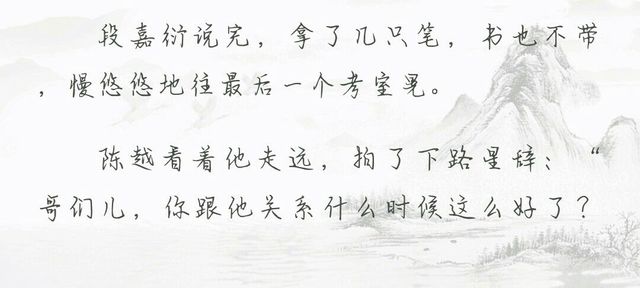 段嘉衍说完，拿了几只笔，书也不带
，慢悠悠地往最后一个考室晃。
陈越看着他走远，拍了下路星辞：“
哥们儿，你跟他关系什么时候这么好了？